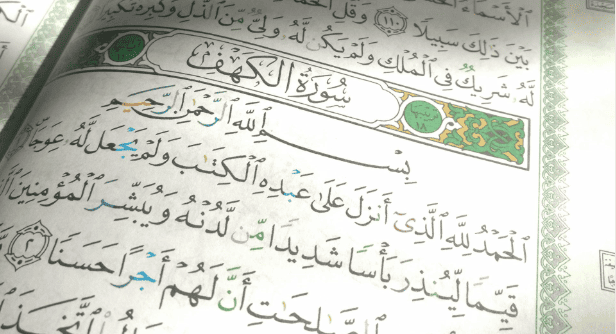 الأسماء
بَيْنَ ذَٰلِكَ سَبِيلًا ١١٠ وَقُلِ الْحَمْدُ
لَّهُ شَرِيكٌ فِي الْمُلْكِ وَلَمْ يَكُن لَّهُ وَلِيٌّ مِّنَ الذُّلِّ وَكَبِّرْهُ تَكْبِيرًا
سُورَةُ الْكَهْفِ
بِسْمِ اللَّهِ الرَّحْمَٰنِ الرَّحِيمِ
الْحَمْدُ لِلَّهِ الَّذِي أَنزَلَ عَلَىٰ عَبْدِهِ الْكِتَٰبَ وَلَمْ يَجْعَل لَّهُ عِوَجًا
قَيِّمًا لِّيُنذِرَ بَأْسًا شَدِيدًا مِّن لَّدُنْهُ وَيُبَشِّرَ الْمُؤْمِنِينَ
الصَّٰلِحَٰتِ أَنَّ لَهُمْ أَجْرًا حَسَنًا ٢